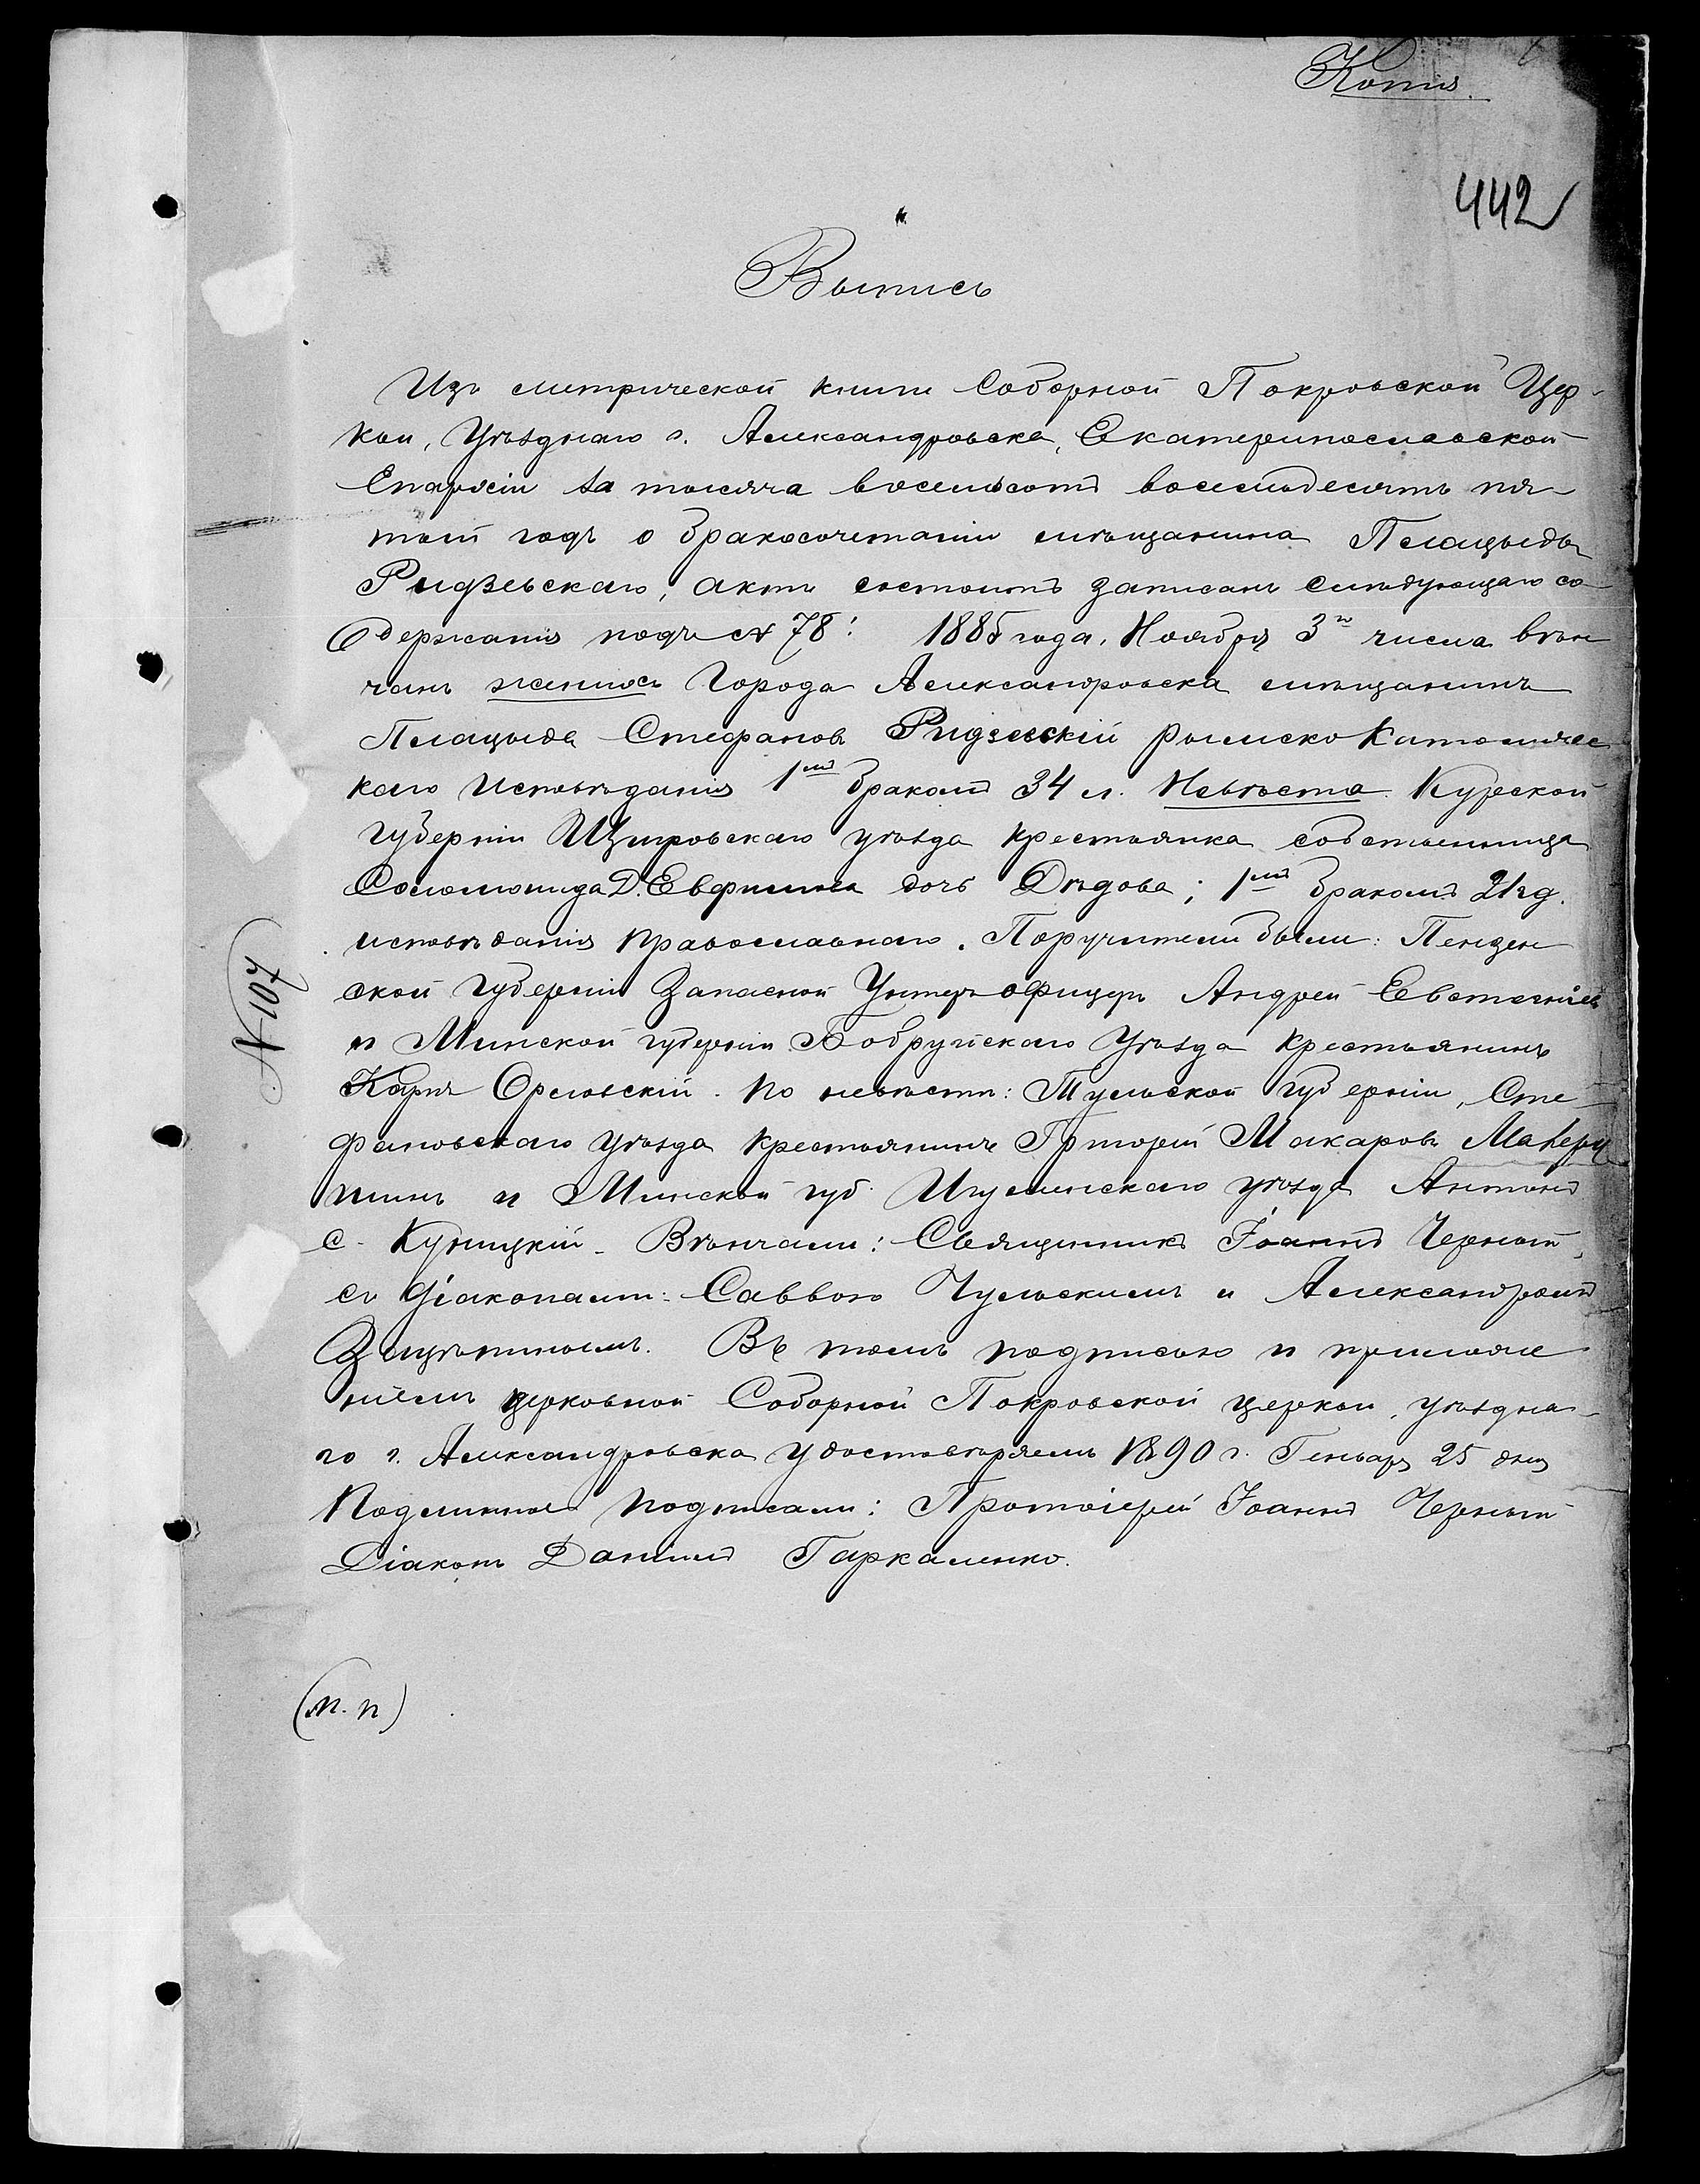 Копія
442
Выпись
Изъ метрической книги Соборной Покровской Цер-
кви, Уѣзднаго г. Александровска, Екатеринославской
Епархіи за тысяча восемьсотъ восемьдесятъ пя-
тый годъ о бракосочетаніи мѣщанина Плацыды
Ридзевскаго, актъ состоитъ записанъ слѣдующаго со-
держанія подъ № 78: 1885 года, Ноября 3го числа вѣн
чанъ женихъ города Александровска мѣщанинъ
Плацыда Стефановъ Ридзевскій римско Католичес
каго Исповѣданія 1мъ бракомъ 34 л. Невѣста Курской
губерніи Щигровскаго уѣзда крестьянка собственница
Соломонида Д. Евфимова дочь Дѣдова; 1мъ бракомъ 21 гд.
исповѣданія православнаго. Поручители были: Пензен
ской губерніи Запасной Унтеръ офицеръ Андрей Евстегнѣевъ
и Минской губерніи Бобруйскаго Уѣзда крестьянинъ
Карпъ Орловскій. по невѣстѣ: Тульской губерніи, Сте-
фановскаго уѣзда крестьянинъ Григорій Макаровъ
и Минской губ. Игуменскаго уѣзда Антонъ
С. Куницкій. Вѣнчали: Священникъ Іоаннъ Черный,
съ діаконами: Саввою Чульскимъ и Александромъ
Въ томъ подписью и приложе
ніемъ церковной Соборной Покровской церкви, уѣздна-
го г. Александровска удостовѣряемъ 1890 г. Генваря 25 дня
Подлинное подписали: Протоіерей Іоаннъ Черный
Діаконъ Даніилъ Гаркаленко.
(м. п)
№ 107